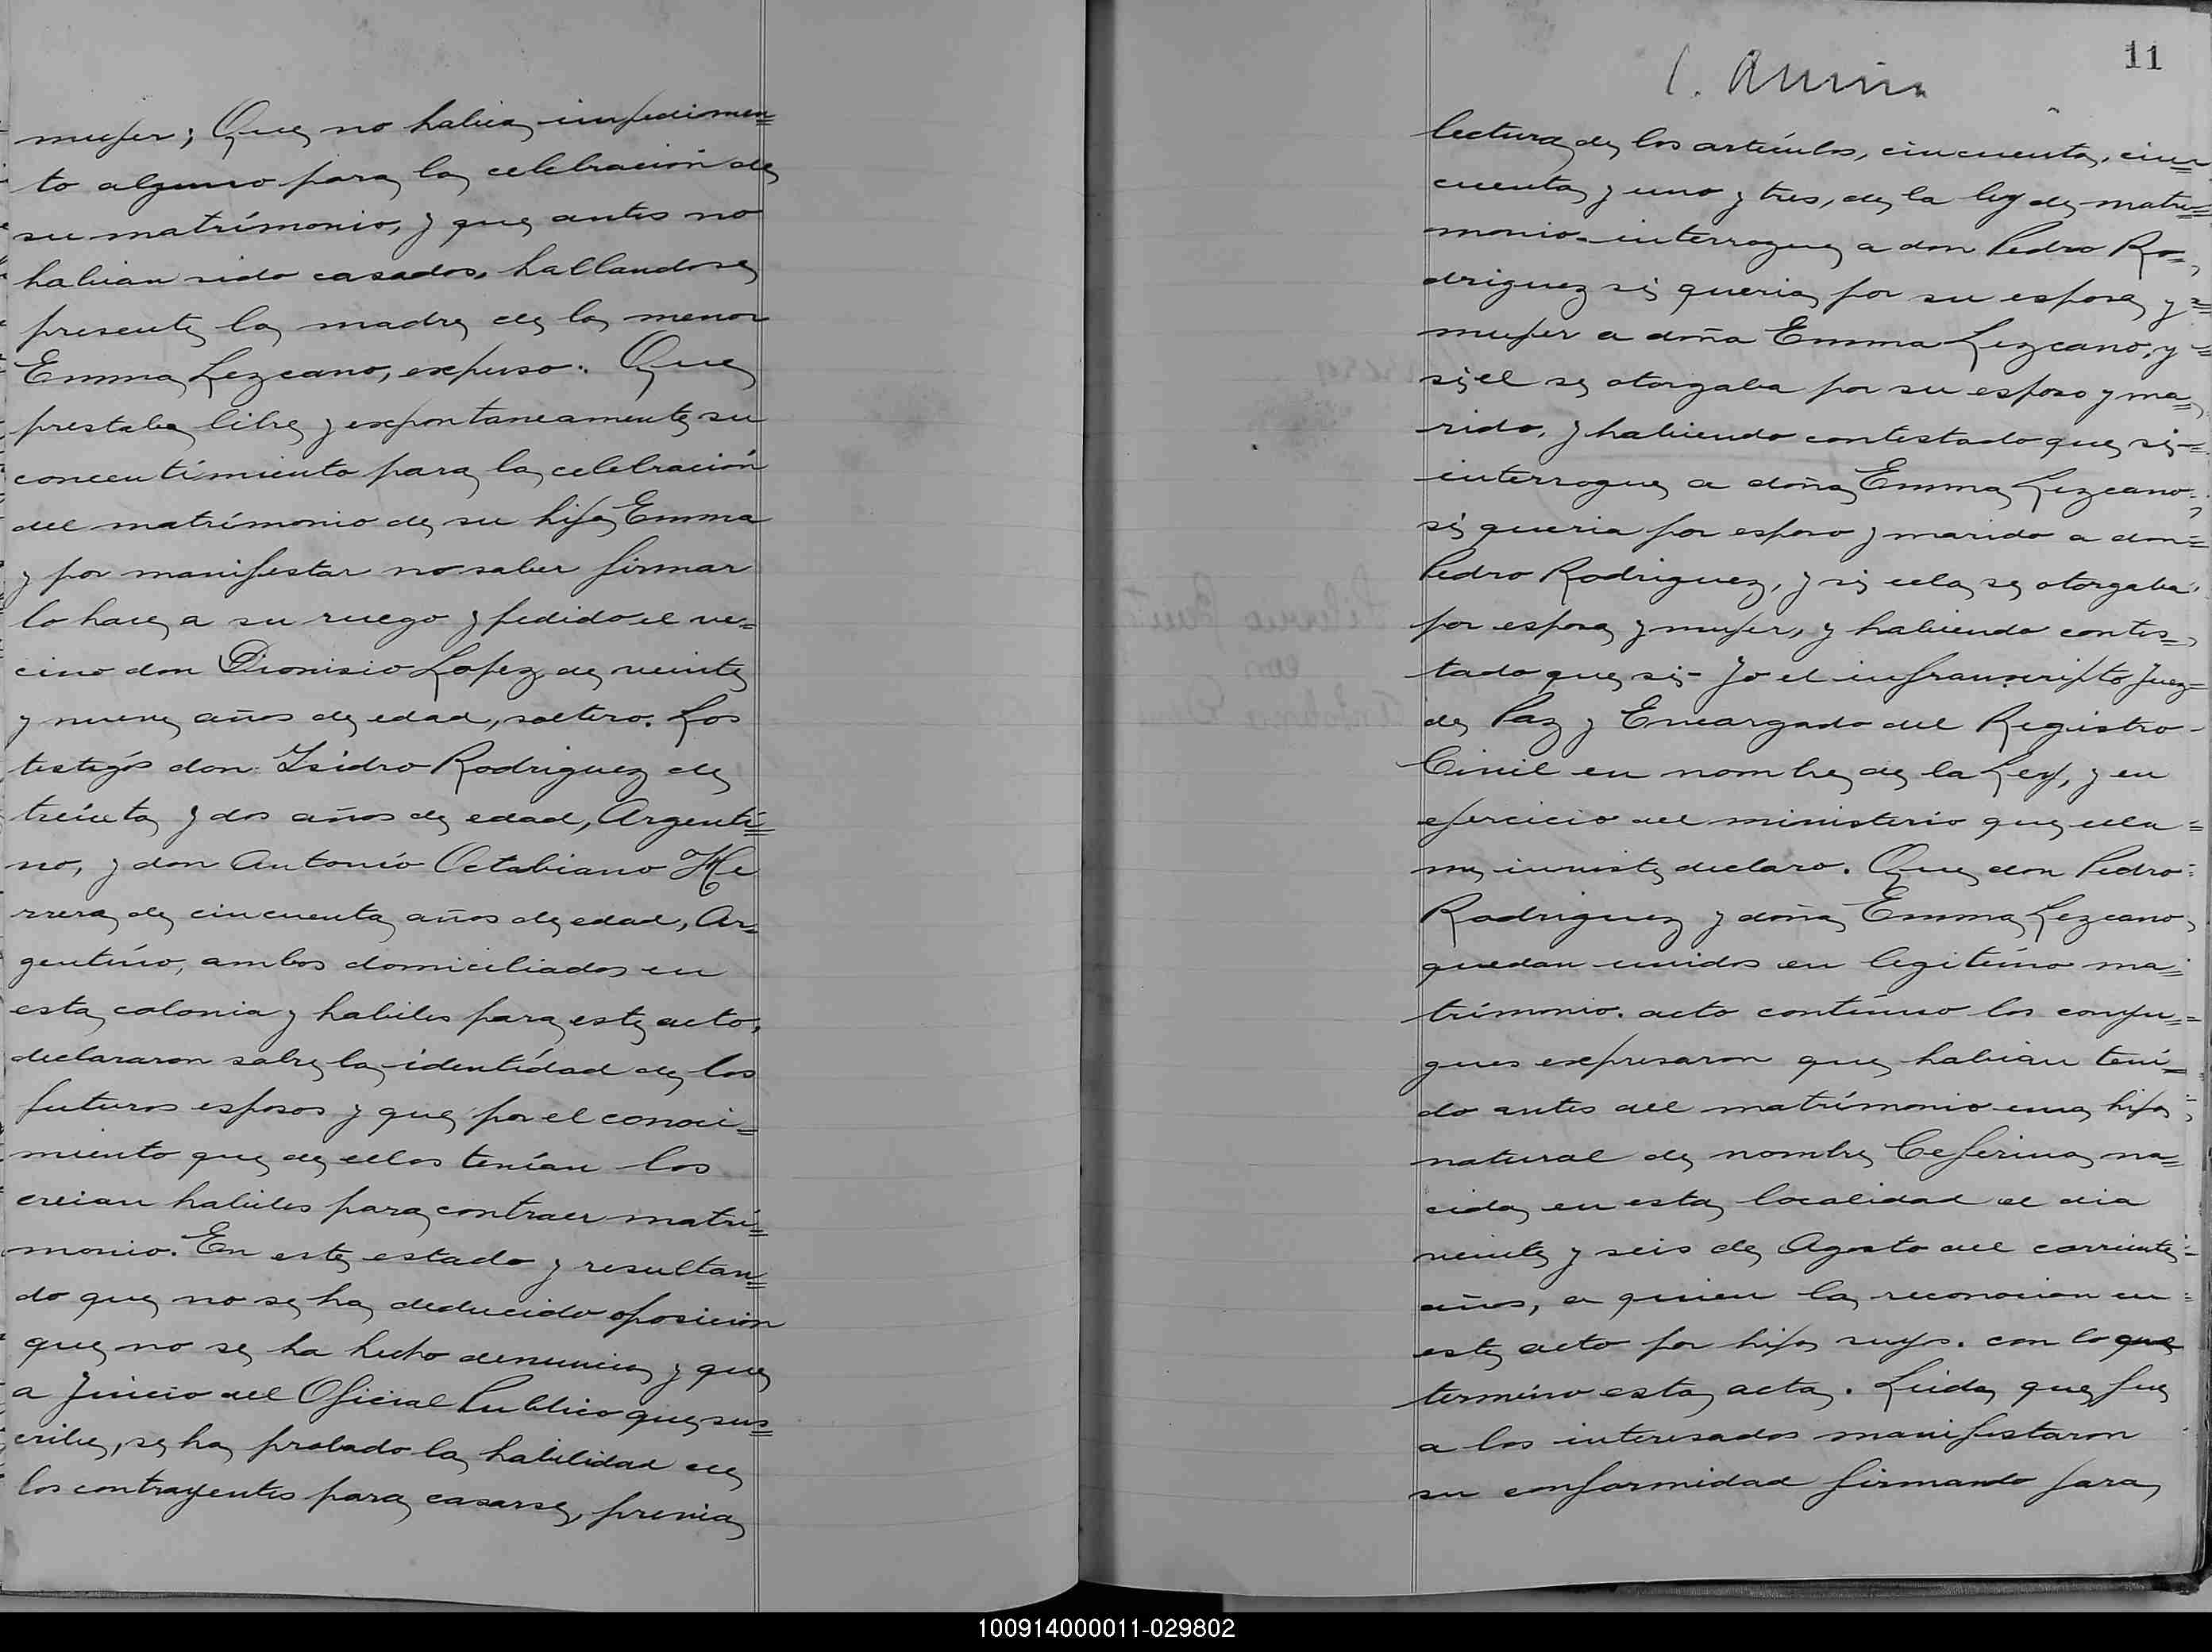 mujer; Que no habia impedimen=
to alguno para la celebración de
su matrímonio, y que antes no
habian sido casados, hallandose
presente la madre de la menor
Emma Lezcano, expuso: Que
prestaba libre y expontaneamente su
concentimiento para la celebración
del matrímonio de su hija Emma
y por manifestar no saber firmar
lo hace a su ruego y pedido el ve=
cino don Dionisio Lopez de veinte
y nueve años de edad, soltero. Los
testigos don Isidro Rodriguez de
treinta y dos años de edad, Argenti=
no, y don Antonio Octabiano He
rrera de cincuenta años de edad, Ar=
gentino, ambos domiciliados en
esta colonia y habiles para este acto,
declararon sobre la identidad de los
futuros esposos y que por el conoci=
miento que de ellos tenían los
creian habiles para contraer matri=
monio. En este estado y resultan=
do que no se ha deducido oposición
que no se ha hecho denuncia y que
a Juicio del Oficial Publico que sus=
cribe, se ha probado la habilidad de
los contrayentes para casarse, previa
11
lectura de los artículos, cincuenta, cin=
cuenta y uno y tres, de la ley de matri=
monio interrogue a don Pedro Ro=
driguez si queria por su esposa y =
mujer a doña Emma Lezcano, y =
si el se otorgaba por su esposo y ma=
rido, y habiendo contestado que si =
interrogue a doña Emma Lezcano
si queria por esposo y marido a don =
Pedro Rodriguez, y si ella se otorgaba
por esposa y mujer, y habiendo contes=
tado que si - Yo el infranscripto Juez =
de Paz y Encargado del Registro -
Civil en nombre de la Ley, y en
ejercicio del ministerio que ella =
me inviste declaro. Que don Pedro =
Rodriguez y doña Emma Lezcano,
quedan unidos en legitimo ma=
trímonio. acto contínuo los conyu=
gues expresaron que habian teni=
do antes del matrímonio una hija
natural de nombre Ceferina, na=
cida en esta localidad el dia
veinte y seis de Agosto del corriente -
años, a quien la reconocian en =
este acto por hija suya. con lo que
termino esta acta. Leida que fue
a los interesados manifestaron
su conformidad firmando para